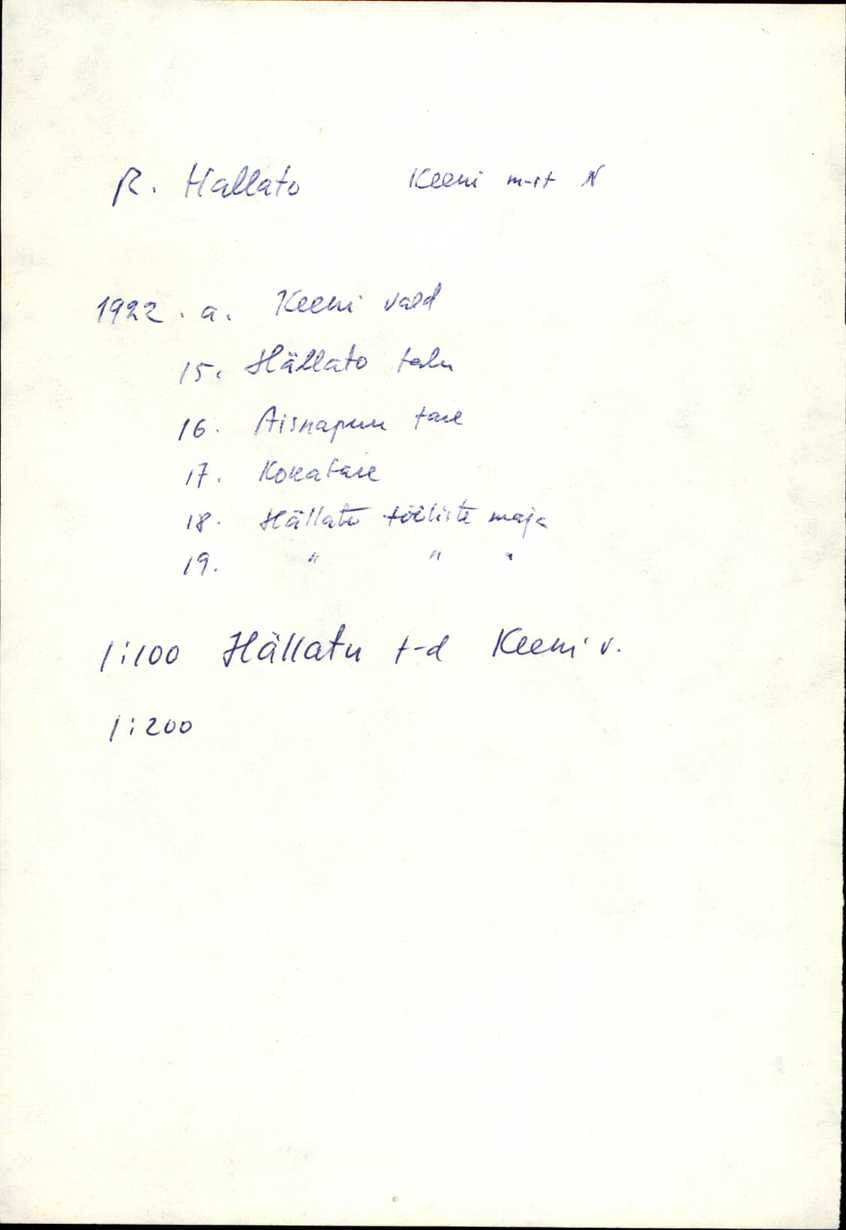 R. Hallato Keeni m-st N
1922. a. Keeni vald
15. Hällato talu
16. Aisnapuu tare
17. Kokatare
18. Hällato tööliste maja
19. " " "
1:100 Hällatu t-d Keeni v.
1:200